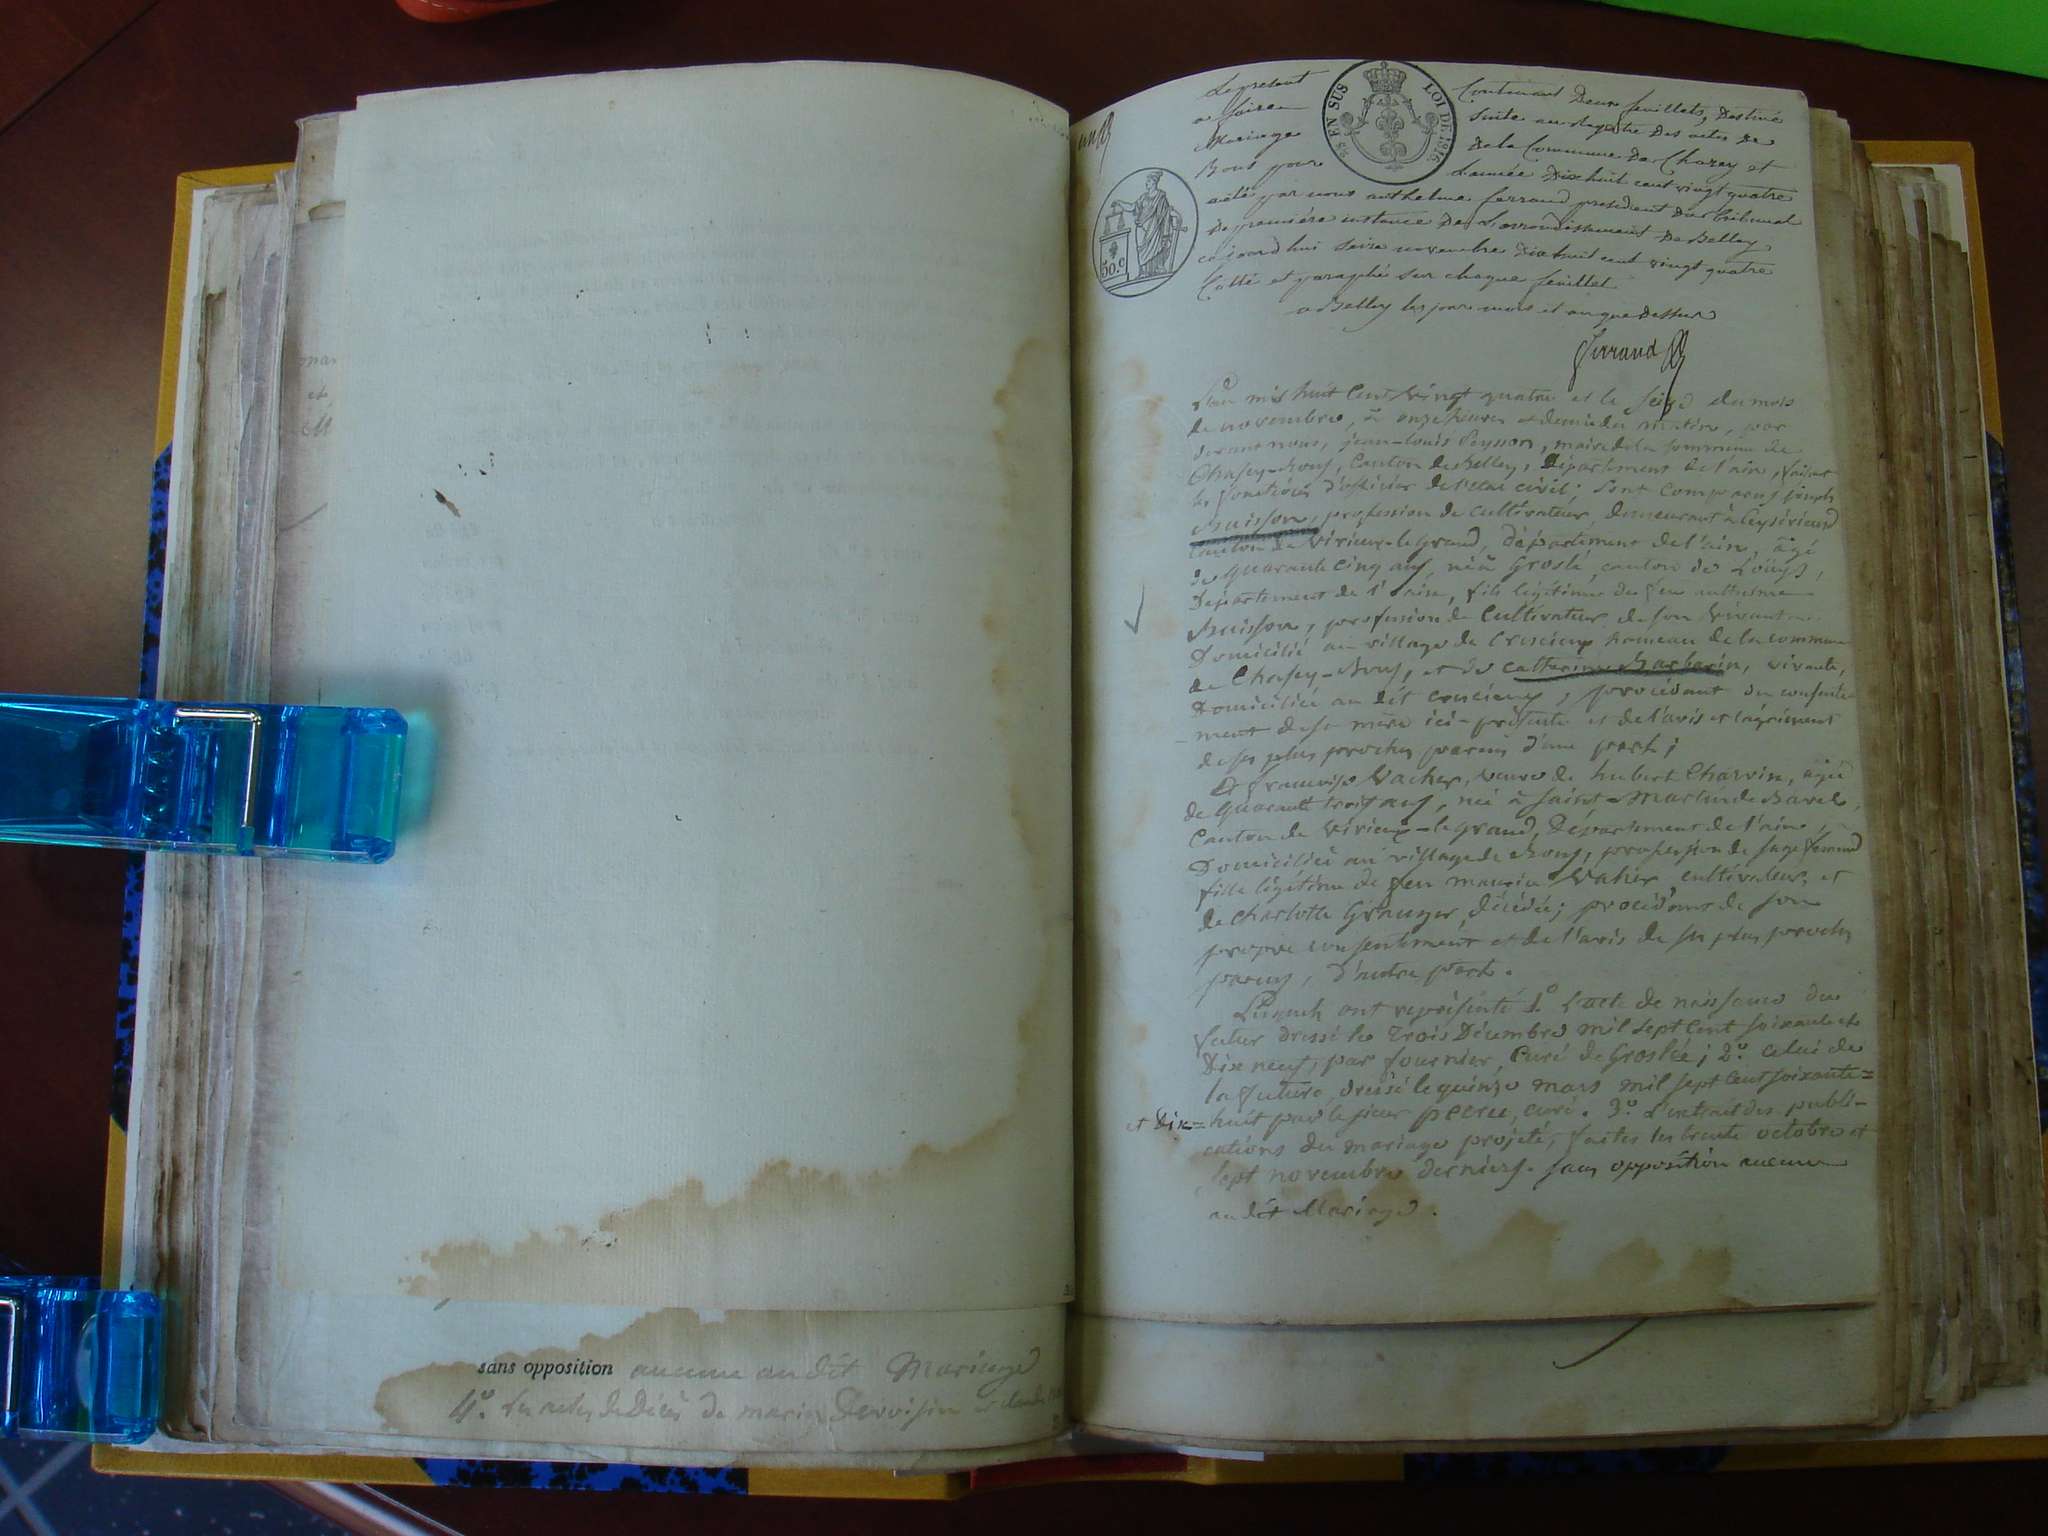 sans opposition aucune au dit Mariage
4º. Les actes de Décès de
Le present
a faire
Mariage
Bons pour
25 EN SUS LOI DE 1816
Contenant Deux feuillets, Destiné
suite au Registre Des actes de
De la Commune De Chazey et
L'année Dix huit cent vingt quatre
par nous anthelme ferrand president Du tribunal
De premiere instance De L'arrondissement De Belley
cejourd'hui seize novembre Dix huit cent vingt quatre
Cotté et paraphé sur chaque feuillet
a Belley les jour mois et an que Dessus
50.c
ferrand
L'an mil huit Cent vingt quatre et le seize du mois
de novembre, à onze heures et demie du matin, par
devant nous, jean-louis Peysson, maire de la commune de
Chasey-Bons, Canton de Belley, Département de l'ain, faisant
les fonctions d'officier de l'état civil; sont comparus joseph
Buisson, profession de cultivateur, demeurant à Ceyserieud
Canton de Virieux-le Grand, département de l'ain, âgé
de quarante cinq ans, né à Groslé, canton de
Département de l'ain, fils légitime de feu anthelme
Buisson, profession de Cultivateur de son vivant
Domicilié au village de Crescieux hameau de la commune
de Chasey-Bons, et de catherine Barbarin, vivante,
Domiciliée au dit Crescieux, procédant du consente-
-ment de sa mère ici-présente et de l'avis et l'agrément
de ses plus proches parens d'une part;
Et françoise Vacher, veuve de hubert Charvin, âgée
de quarante trois ans, née à saint-Martin de Bavel,
Canton de Virieux-le grand, Département de l'ain,
Domiciliée au village de Bons, profession de sage femme
fille légitime de feu Vaher, cultivateur, et
de Charlotte Granger, décédée; procédant de son
propre consentement et de l'avis de ses plus proches
parens, d'autre part.
Lesquels ont représenté 1º L'acte de naissance du
futur dressé le trois Décembre mil sept cent soixante et
Dix neuf, par fournier, Curé de Groslée; 2º. celui de
la future, dressé le quinze mars mil sept cent soixante=
et Dix=huit par le sieur curé. 3º. L'extrait des publi-
cations du mariage projeté, faites les trente octobre et
sept novembre derniers. sans opposition aucune
au dit Mariage.